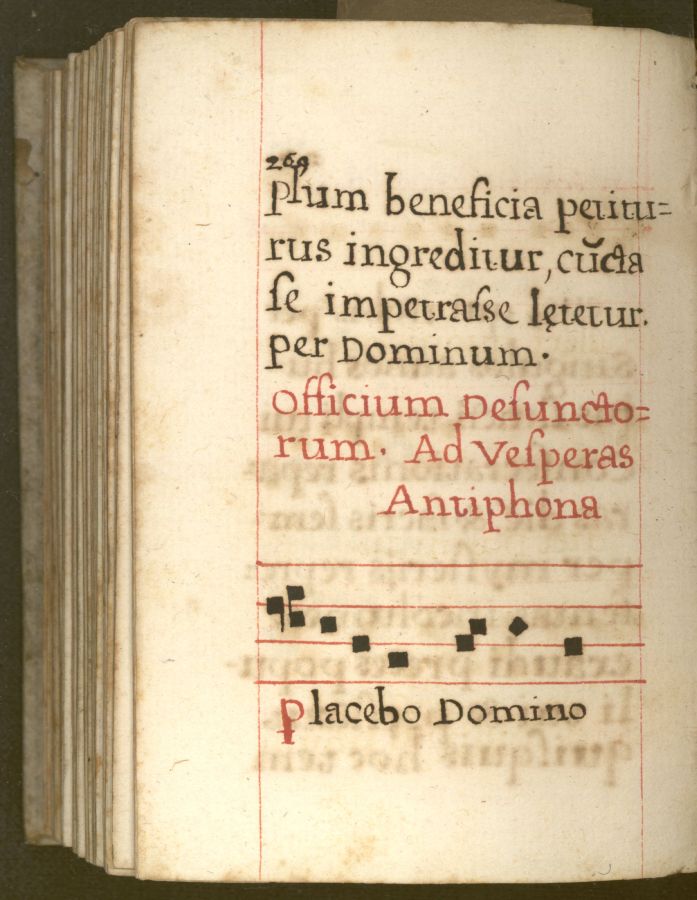 269
plum beneficia petitu=
rus ingreditur, cũcta
ſe impetraſse lętetur.
per Dominum.
Officium Defuncto=
rum. Ad Veſperas
Antiphona
placebo Domino